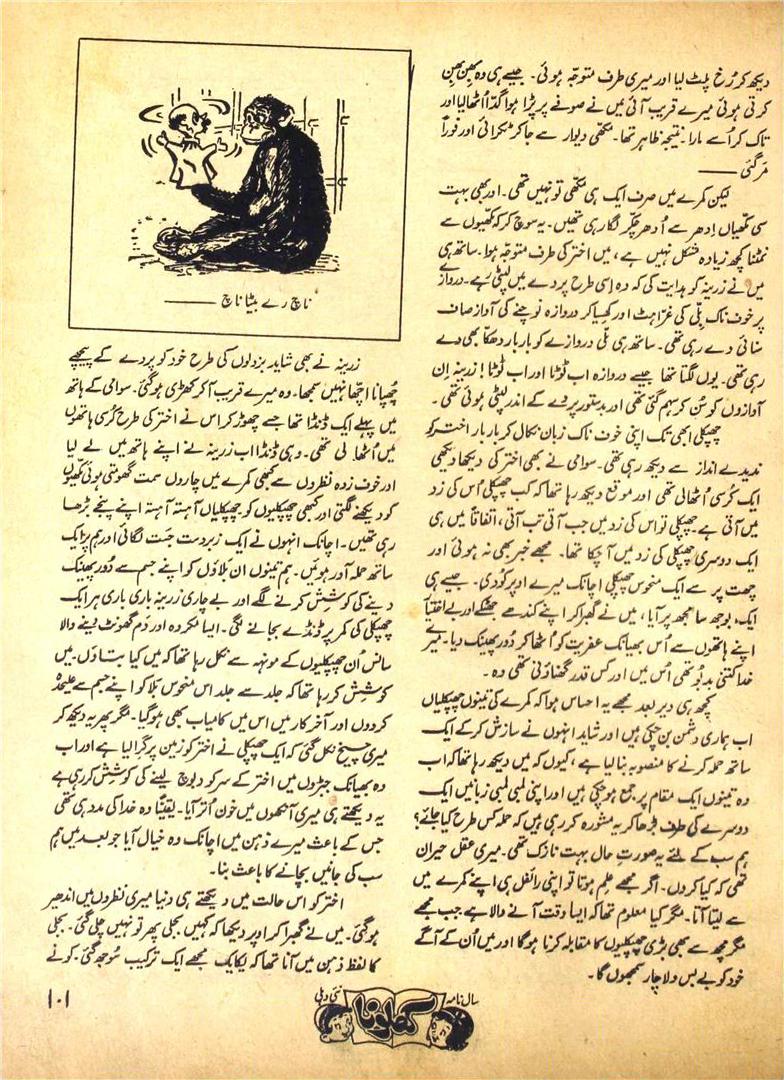 دیکھ کر رُخ پلٹ لیا اور میری طرف متوجّہ ہوئی۔ جیسے ہی وہ بھِن بھِن
کرتی ہوئی میرے قریب آئی میں نے صوفے پر پڑا ہوا گدّا اُٹھا لیا اور
تاک کر اُسے مارا۔ نتیجہ ظاہر تھا۔ مکھّی دیوار سے جا کر ٹکرائی اور فوراً
مَر گئی ——
لیکن کمرے میں صرف ایک ہی مکھّی تو نہیں تھی۔ اور بھی بہت
سی مکھّیاں اِدھر سے اُدھر چکّر لگا رہی تھیں۔ یہ سوچ کر کہ مکھّیوں سے
نمٹنا کچھ زیادہ مشکل نہیں ہے، میں اختر کی طرف متوجّہ ہوا۔ ساتھ ہی
میں نے زرینہ کو ہدایت کی کہ وہ اِسی طرح پردے میں لپٹی رہے۔ دروازے
پر خوف ناک بلّی کی غرّاہٹ اور کھسیا کر دروازہ نوچنے کی آواز صاف
سُنائی دے رہی تھی۔ ساتھ ہی بلّی دروازے کو بار بار دھکّا بھی دے
رہی تھی۔ یوں لگتا تھا جیسے دروازہ اب ٹوٹا اور اب ٹوٹا! زرینہ اِن
آوازوں کو سُن کر سہم گئی تھی اور بدستور پردے کے اندر لپٹی ہوئی تھی۔
چھپکلی ابھی تک اپنی خوف ناک زبان نکال کر بار بار اختر کو
ندیدے انداز سے دیکھ رہی تھی۔ سوامی نے بھی اختر کی دیکھا دیکھی
ایک کُرسی اُٹھالی تھی اور موقع دیکھ رہا تھا کہ کب چھپکلی اُس کی زد
میں آتی ہے۔ چھپکلی تو اس کی زد میں جب آتی تب آتی، اتفاقاً میں ہی
ایک دوسری چھپکلی کی زد میں آ چکا تھا۔ مجھے خبر بھی نہ ہوئی اور
چھت پر سے ایک منحوس چھپکلی اچانک میرے اوپر کُودی۔ جیسے ہی
ایک بوجھ سا مجھ پر آیا، میں نے گھبرا کر اپنے کندھے جھٹکے اور بے اختیار
اپنے ہاتھوں سے اُس بھیانک عفریت کو اُٹھا کر دُور پھینک دیا۔ میرے
خدا کتنی بدبُو تھی اُس میں اور کس قدر گھناؤنی تھی وہ۔
کچھ ہی دیر بعد مجھے یہ احساس ہوا کہ کمرے کی تینوں چھپکلیاں
اب ہماری دشمن بن چکی ہیں اور شاید انہوں نے سازش کر کے ایک
ساتھ حملہ کرنے کا منصوبہ بنا لیا ہے، کیوں کہ میں دیکھ رہا تھا کہ اب
وہ تینوں ایک مقام پر جمع ہو چکی ہیں اور اپنی لمبی لمبی زبانیں ایک
دوسرے کی طرف بڑھا کر یہ مشورہ کر رہی ہیں کہ حملہ کس طرح کیا جائے؟
ہم سب کے لئے یہ صورتِ حال بہت نازک تھی۔ میری عقل حیران
تھی کہ کیا کروں۔ اگر مجھے علم ہوتا تو اپنی رائفل ہی اپنے کمرے میں
سے لیتا آتا۔ مگر کیا معلوم تھا کہ ایسا وقت آنے والا ہے جب مجھے
مگرمچھ سے بھی بڑی چھپکلیوں کا مقابلہ کرنا ہوگا اور میں اُن کے آگے
خود کو بے بس ولاچار سمجھوں گا۔
ناچ رے بیٹا ناچ ——
زرینہ نے بھی شاید بزدلوں کی طرح خود کو پردے کے پیچھے
چُھپانا اچھا نہیں سمجھا۔ وہ میرے قریب آ کر کھڑی ہو گئی۔ سوامی کے ہاتھ
میں پہلے ایک ڈنڈا تھا جسے چھوڑ کر اس نے اختر کی طرح کُرسی ہاتھوں
میں اُٹھا لی تھی۔ وہی ڈنڈا اب زرینہ نے اپنے ہاتھ میں لے لیا
اور خوف زدہ نظروں سے کبھی کمرے میں چاروں سمت گھومتی ہوئی مکھّیوں
کو دیکھنے لگتی اور کبھی چھپکلیوں کو۔ چھپکلیاں آہستہ آہستہ اپنے پنجے بڑھا
رہی تھیں۔ اچانک انہوں نے ایک زبردست جَست لگائی اور ہم پر ایک
ساتھ حملہ آور ہوئیں۔ ہم تینوں ان بلاؤں کو اپنے جسم سے دُور پھینک
دینے کی کوشِش کرنے لگے اور بے چاری زرینہ باری باری ہر ایک
چھپکلی کی کمر پر ڈنڈے بجانے لگی۔ ایسا مکروہ اور دَم گھونٹ دینے والا
سانس اُن چھپکلیوں کے مونہہ سے نکل رہا تھا کہ میں کیا بتاؤں۔ میں
کوشِش کر رہا تھا کہ جلد سے جلد اس منحوس بَلا کو اپنے جسم سے علیٰحدہ
کر دوں اور آخر کار میں اس میں کامیاب بھی ہو گیا۔ مگر پھر یہ دیکھ کر
میری چیخ نکل گئی کہ ایک چھپکلی نے اختر کو زمین پر گرا لیا ہے اور اب
وہ بھیانک جبڑوں میں اختر کے سر کو دبوچ لینے کی کوشش کر رہی ہے
یہ دیکھتے ہی میری آنکھوں میں خون اُتر آیا۔ یقیناً وہ خدا کی مدد ہی تھی
جس کے باعث میرے ذہن میں اچانک وہ خیال آیا جو بعد میں ہم
سب کی جانیں بچانے کا باعث بنا۔
اختر کو اس حالت میں دیکھتے ہی دنیا میری نظروں میں اندھیر
ہو گئی۔ میں نے گھبرا کر اوپر دیکھا کہ کہیں بجلی پھر تو نہیں چلی گئی۔ بجلی
کا لفظ ذہن میں آنا تھا کہ یکایک مجھے ایک ترکیب سُوجھ گئی۔ کونے
سال نامہ کھلونا نئی دہلی
۱۰۱